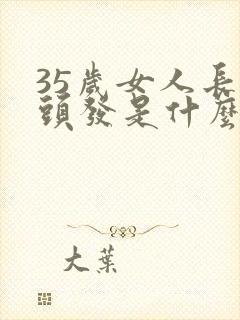 35歲女人長
頭發是什麼
大葉